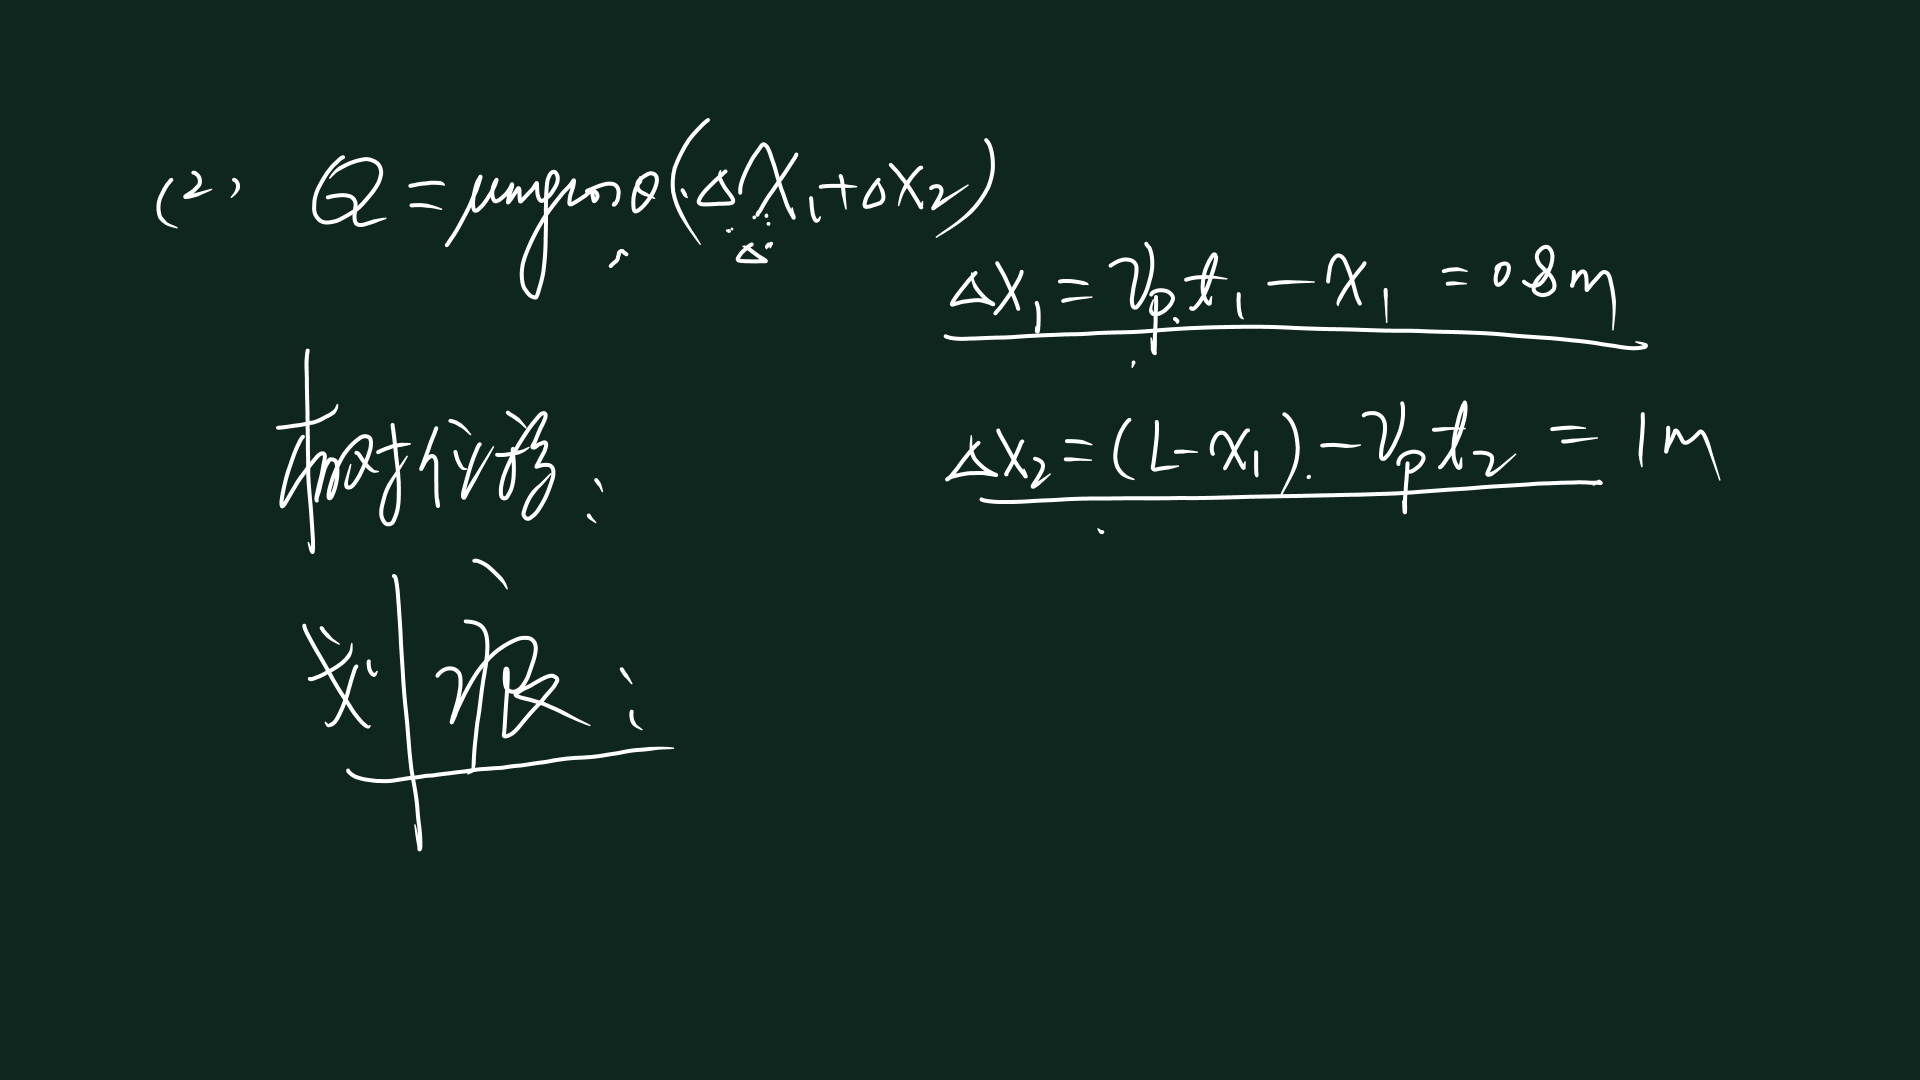 (2) Q = μmgcosθ(ΔX₁+ΔX₂)
ΔX₁ = v_p t₁ − X₁ = 0.8m
相对位移:
ΔX₂ = (L−X₁) − v_p t₂ = 1m
划痕: